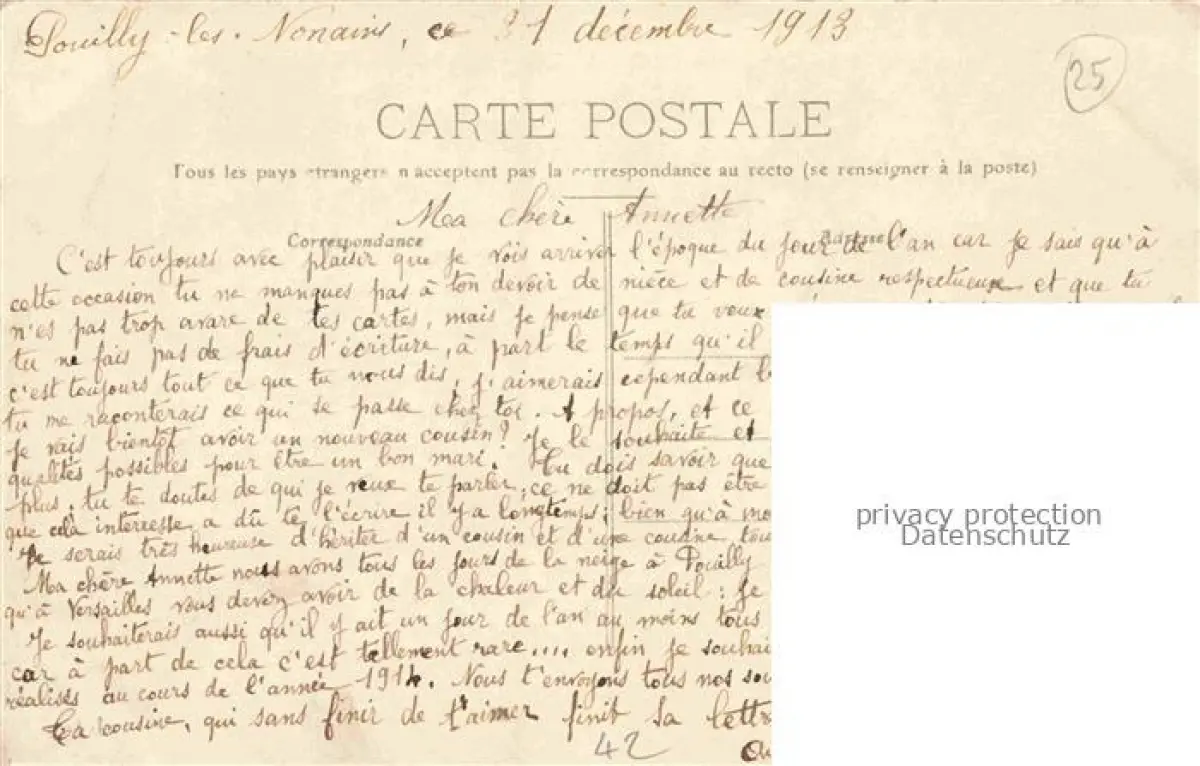 Pouilly-les-Nonains, ce 31 décembre 1913
25
CARTE POSTALE
Tous les pays étrangers n'acceptent pas la correspondance au recto (se renseigner à la poste)
Ma chère Annette
Correspondance
Adresse
C'est toujours avec plaisir que je vois arriver l'époque du jour de l'an car je sais qu'à
cette occasion tu ne manques pas à ton devoir de nièce et de cousine respectueuse et que tu
n'es pas trop avare de tes cartes, mais je pense que tu veux
tu ne fais pas de frais d'écriture, à part le temps qu'il
c'est toujours tout ce que tu nous dis, j'aimerais cependant
tu me raconterais ce qui se passe chez toi. A propos, et ce
je vais bientôt avoir un nouveau cousin? Je le souhaite et
qualités possibles pour être un bon mari. Tu dois savoir que
plus, tu te doutes de qui je veux te parler, ce ne doit pas être
que cela intéresse a dû te l'écrire il y a longtemps; bien qu'à
Je serais très heureuse d'hériter d'un cousin et d'une cousine,
Ma chère Annette nous avons tous les jours de la neige à Pouilly
qu'à Versailles vous devez avoir de la chaleur et du soleil: Je
Je souhaiterais aussi qu'il y ait un jour de l'an au moins tous
car à part de cela c'est tellement rare.... enfin je
réalisés au cours de l'année 1914. Nous t'envoyons tous nos
Ta cousine, qui sans finir de t'aimer finit sa
42
privacy protection
Datenschutz